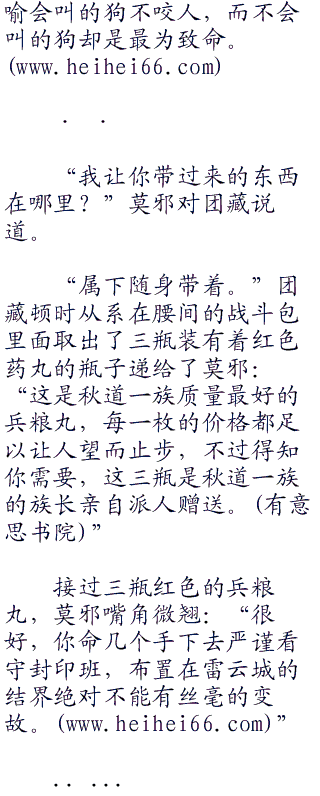 喻会叫的狗不咬人，而不会
叫的狗却是最为致命。
(www.heihei66.com)
. .
“我让你带过来的东西
在哪里？”莫邪对团藏说
道。
“属下随身带着。”团
藏顿时从系在腰间的战斗包
里面取出了三瓶装有着红色
药丸的瓶子递给了莫邪：
“这是秋道一族质量最好的
兵粮丸，每一枚的价格都足
以让人望而止步，不过得知
你需要，这三瓶是秋道一族
的族长亲自派人赠送。(有意
思书院)”
接过三瓶红色的兵粮
丸，莫邪嘴角微翘：“很
好，你命几个手下去严谨看
守封印班，布置在雷云城的
结界绝对不能有丝毫的变
故。(www.heihei66.com)”
.. ...